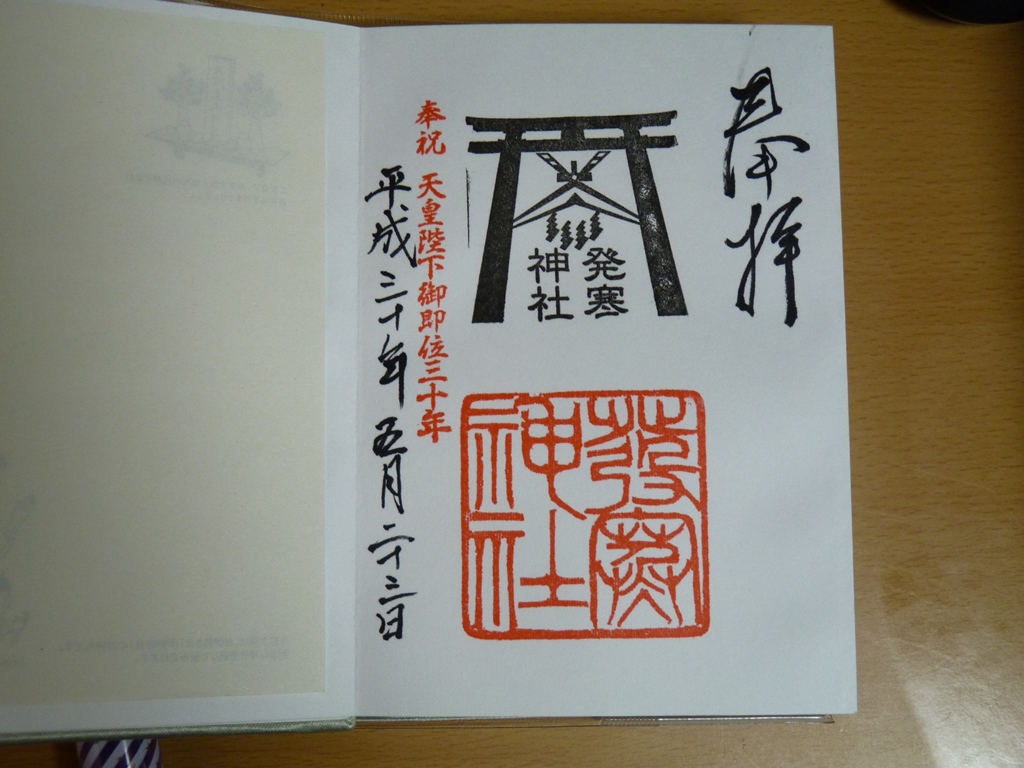 奉拝
発寒
神社
發寒
神社
奉祝 天皇陛下御即位三十年
平成三十年五月二十三日